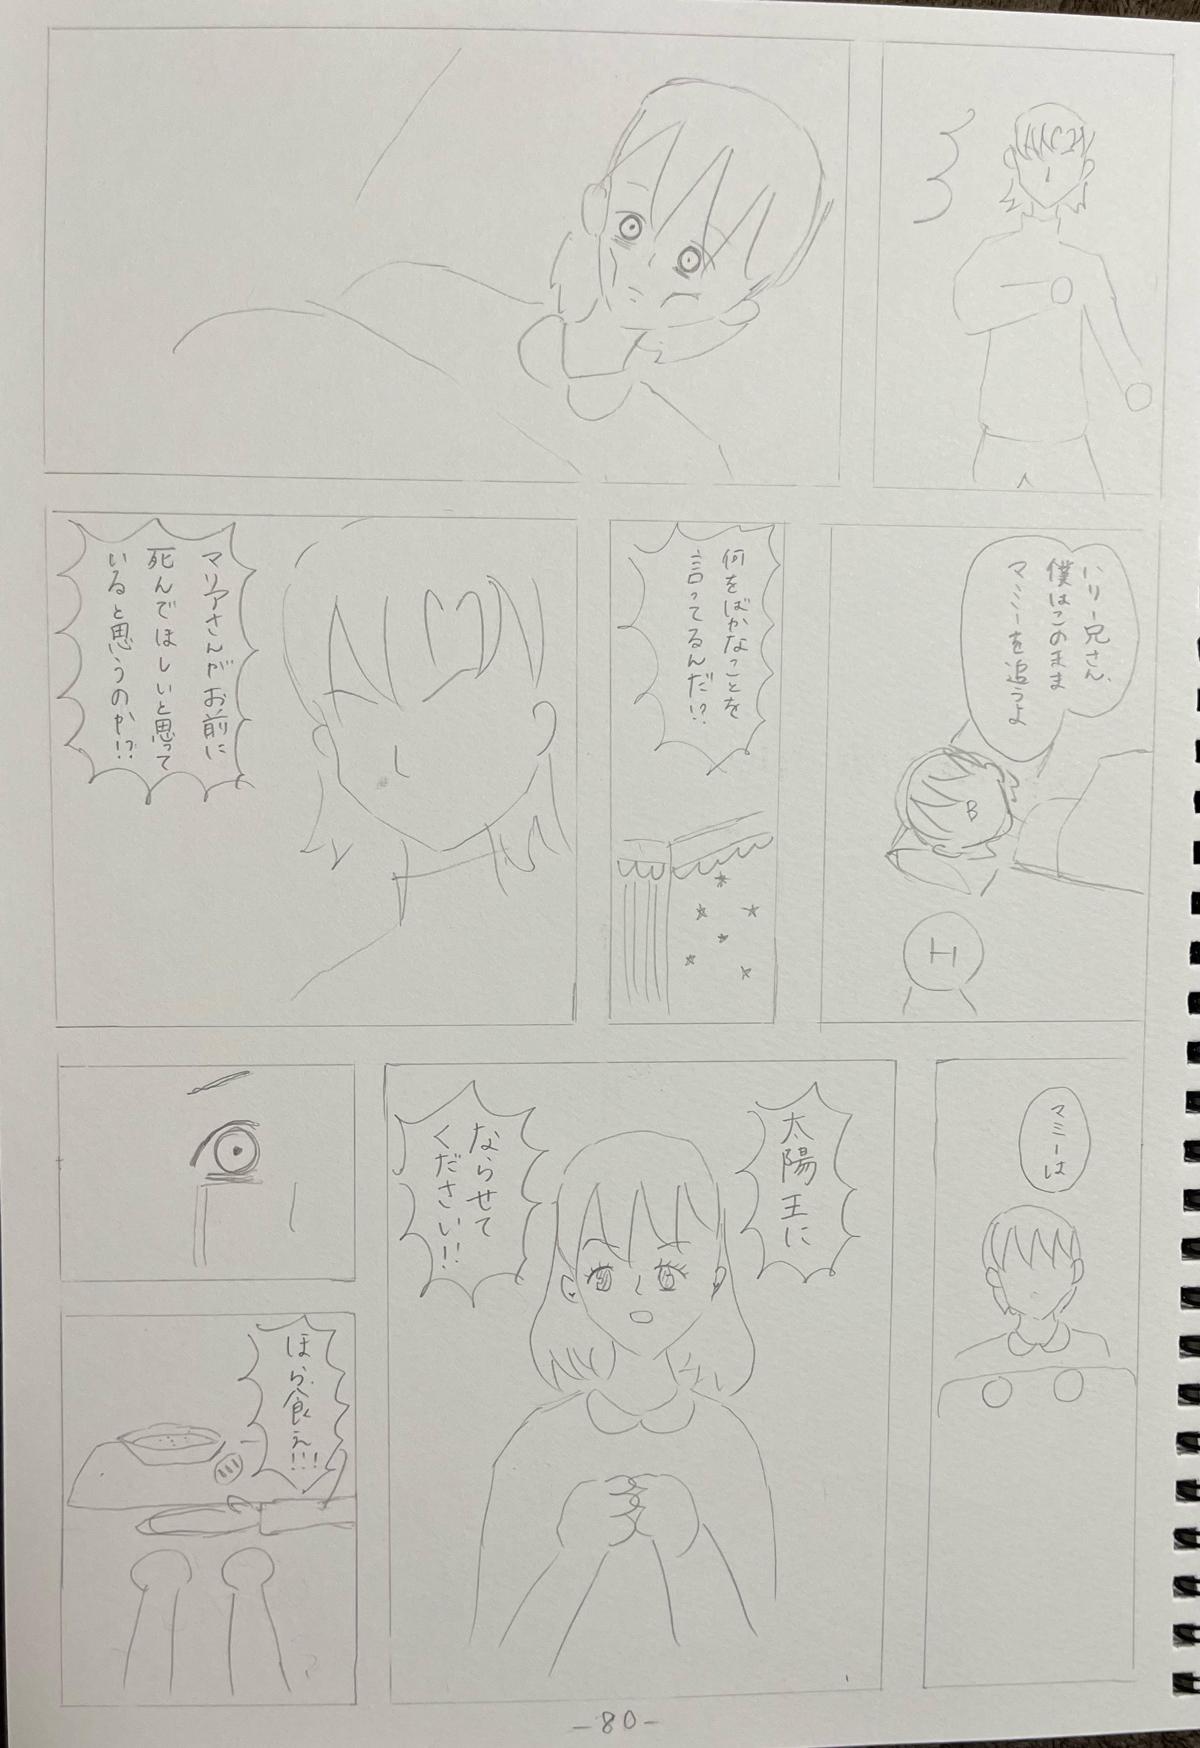 ハリー兄さん、
僕はこのまま
マミーを追うよ
B
H
何をばかなことを
言ってるんだ!?
マリアさんがお前に
死んでほしいと思って
いると思うのか!?
マミーは
太陽王に
ならせて
ください!!
ほら、食え!!!
-80-